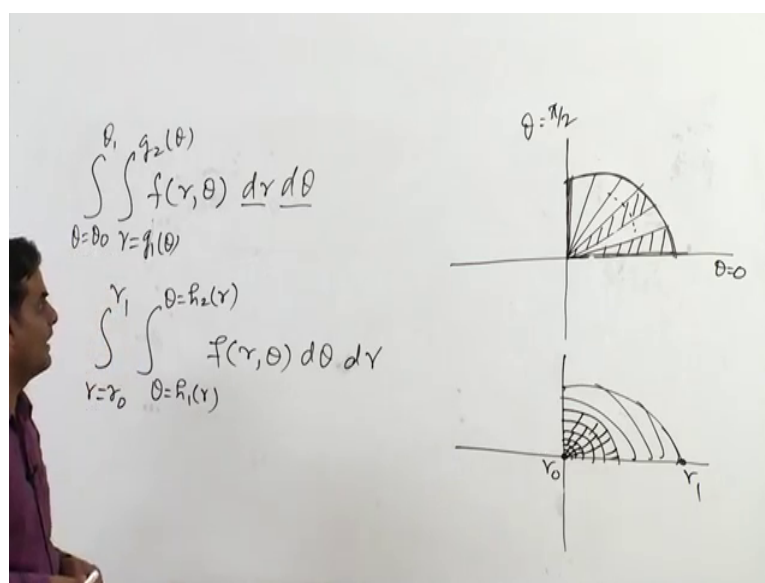 ∫_{θ=θ₀}^{θ₁} ∫_{r=g₁(θ)}^{g₂(θ)} f(r,θ) dr dθ
∫_{r=r₀}^{r₁} ∫_{θ=h₁(r)}^{θ=h₂(r)} f(r,θ) dθ dr
θ=π/2
θ=0
r₀
r₁